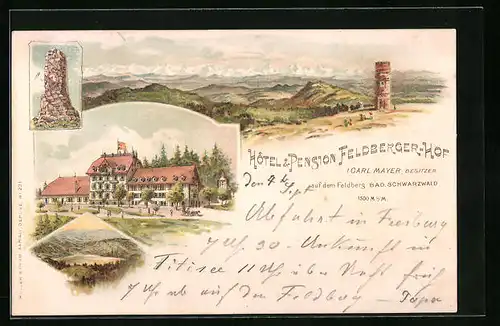 HÔTEL & PENSION FELDBERGER-HOF
CARL MAYER, BESITZER
auf dem Feldberg BAD. SCHWARZWALD
1350 M.ü/M.
den 4t Sept
Abfahrt in Freiburg
7 Uhr 30 - Ankunft in
Titisee 11 Uhr über Nacht früh
7 Uhr ab auf den Feldberg - Papa